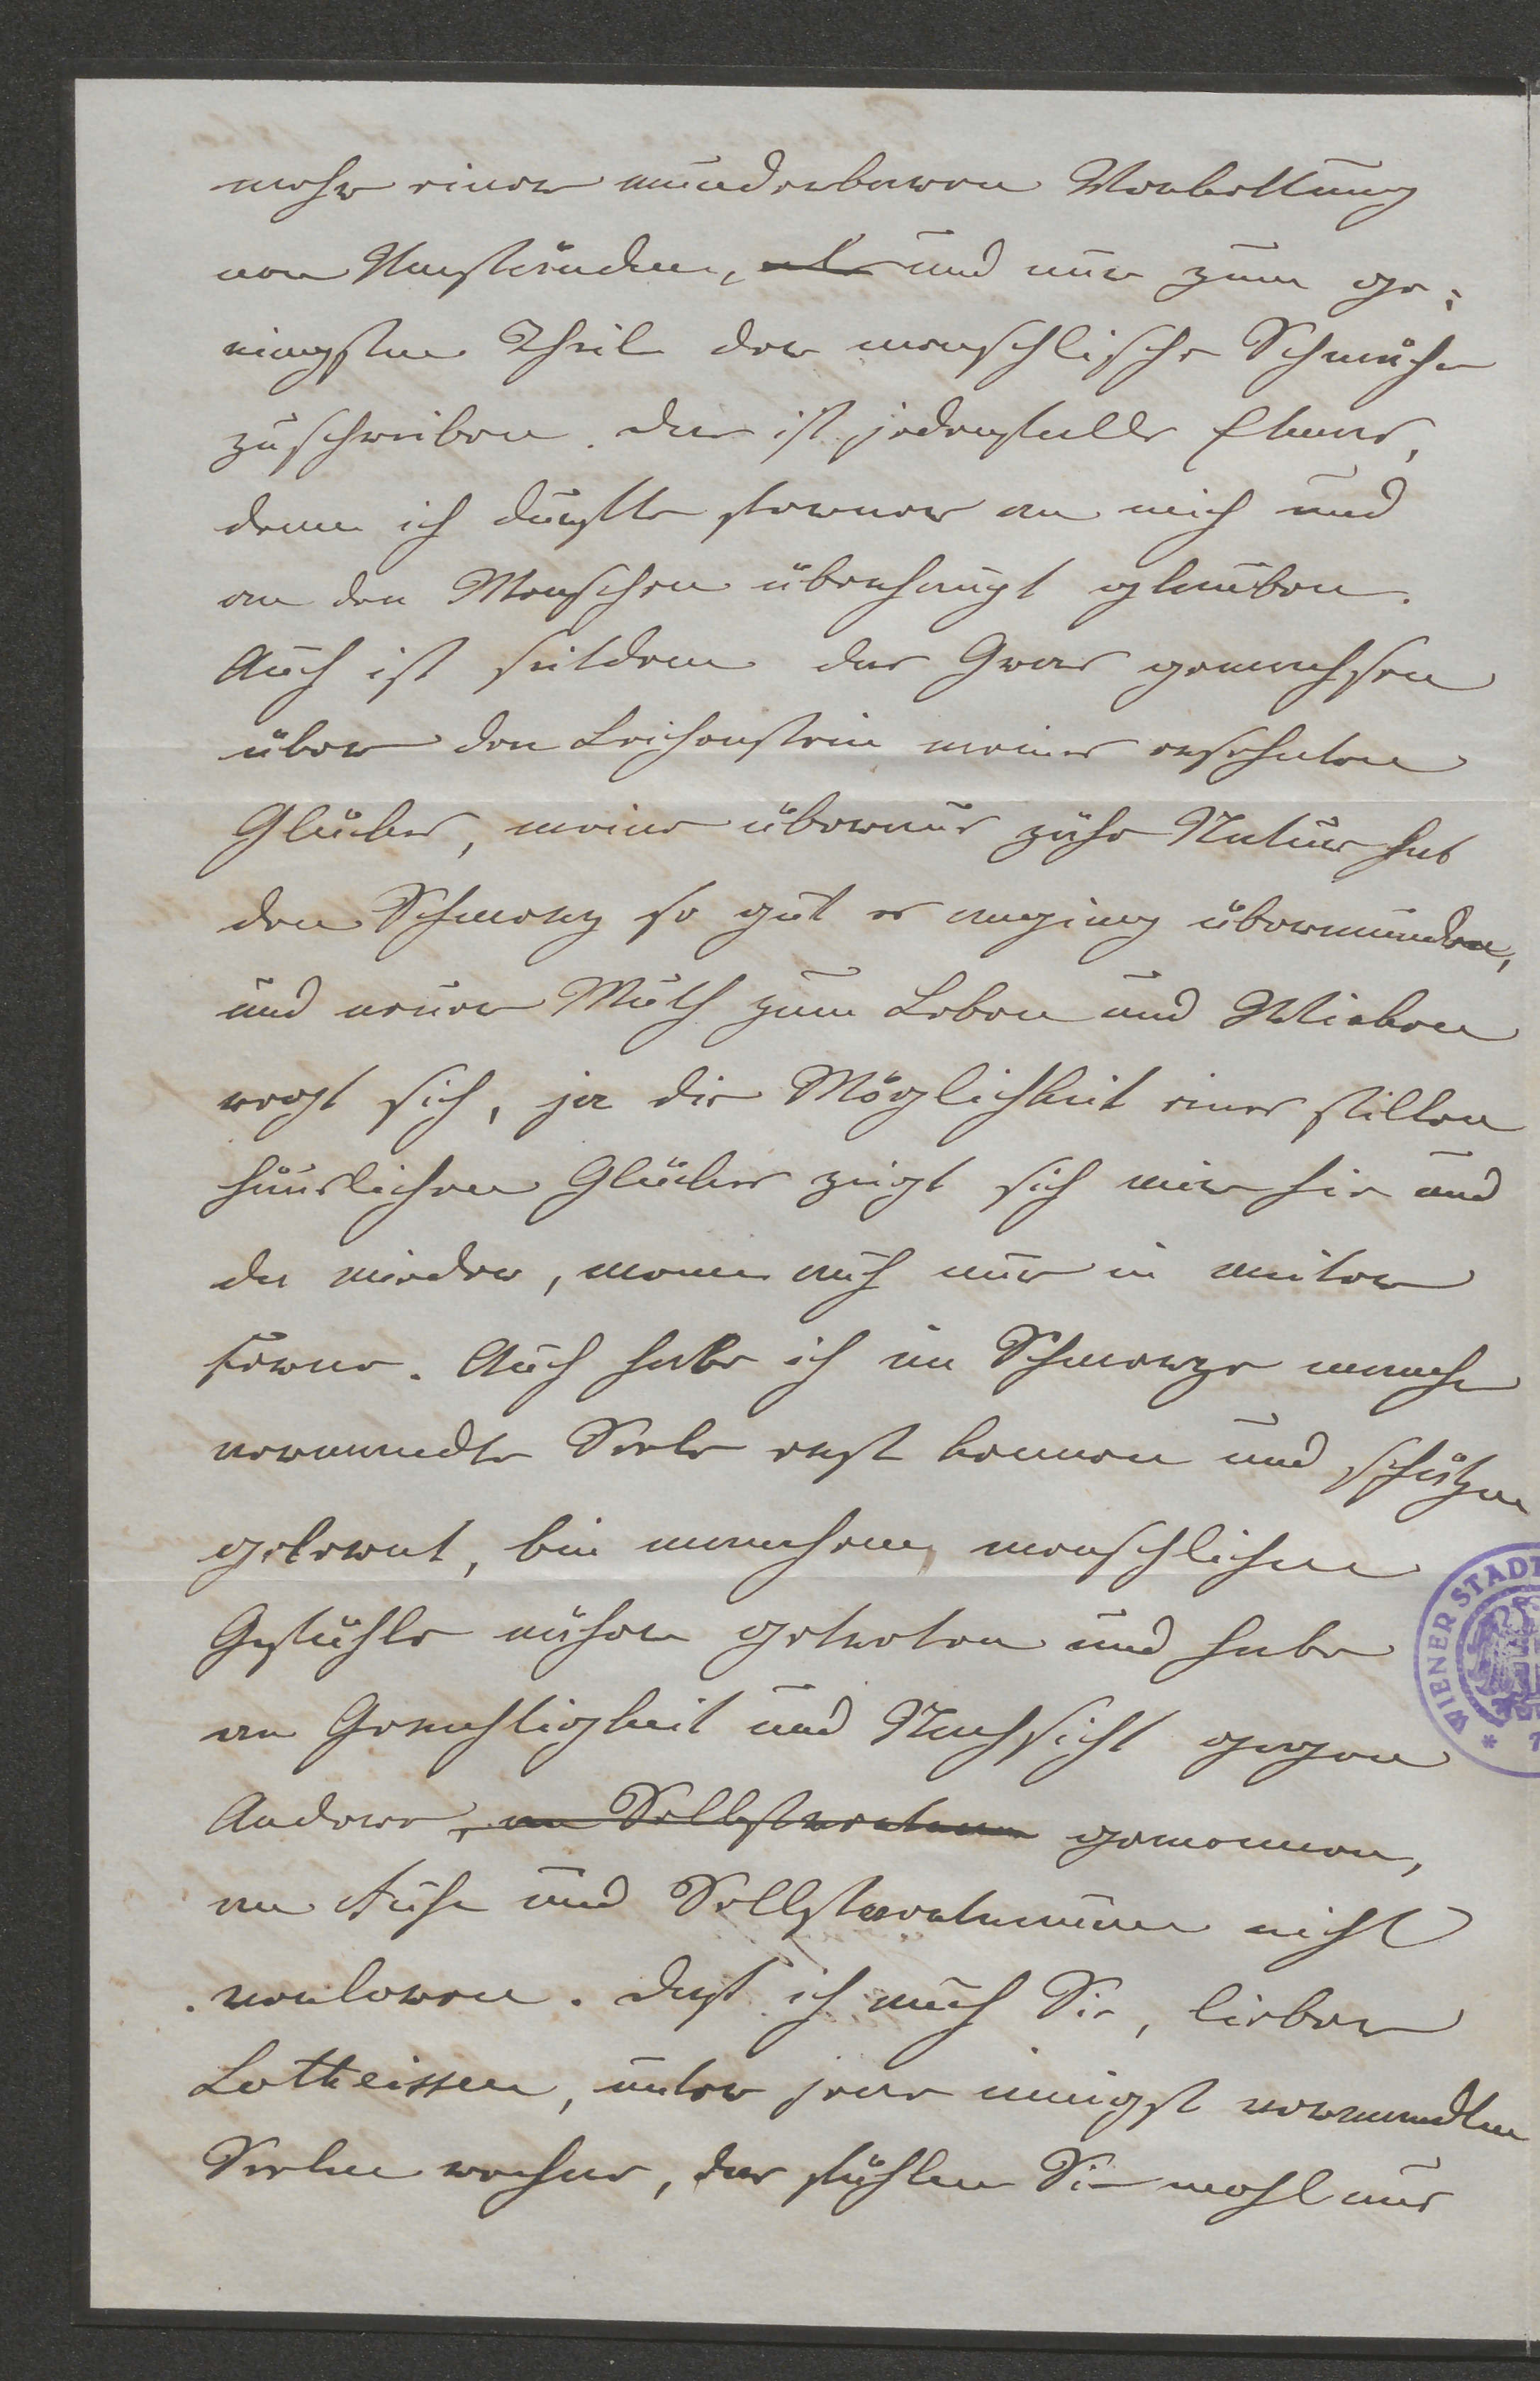 mehr einer wunderbaren Verkettung
von Umständen, als und nur zum ge-
ringsten Theil der menschlische Schwäche
zuschreiben. Das ist jedenfalls Etwas,
denn ich dürfte ferner an mich und
an den Menschen überhaupt glauben.
Auch ist seitdem das Gras gewachsen
über den Leichenstein meines ersehnten
Glückes, meine überaus zähe Natur hat
den Schmerz so gut es anging überwunden,
und neuer Muth zum Leben und Wirken
regt sich, ja die Möglichkeit eines stillen
häuslichen Glückes zeigt sich mir hie und
da wieder, wenn auch nur in weiter
Ferne. Auch habe ich im Schmerze manche
verwandte Seele erst kennen und schätzen
gelernt, bin manchem menschlichen
Gefühle näher getreten und habe
an Gerechtigkeit und Nachsicht gegen
Andere, an Selbstvertrauen gewonnen,
an Ruhe und Selbstvertrauen nicht
verloren. Daß ich auch Sie, lieber
Lotheissen, unter jene innigst verwandten
Seelen rechne, das fühlen Sie wohl aus
WIENER STADT